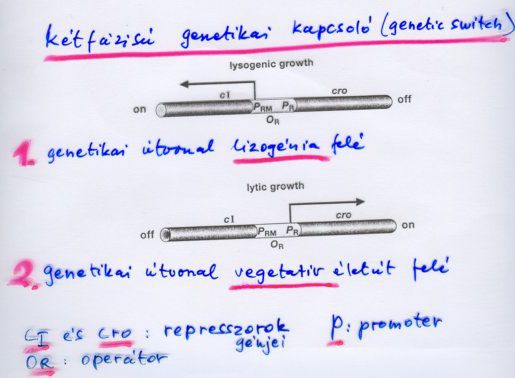 kétfázisú genetikai kapcsoló (genetic switch)
lysogenic growth
on cI PRM PR cro off
OR
1. genetikai útvonal lizogénia felé
lytic growth
off cI PRM PR cro on
OR
2. genetikai útvonal vegetativ életút felé
CI és cro : represszorok génjei P: promoter
OR : operátor